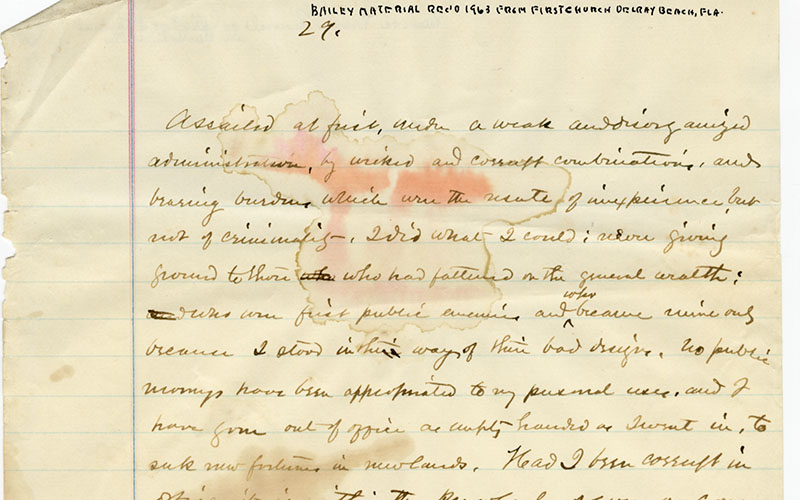 BAILEY MATERIAL REC'D 1963 FROM FIRST CHURCH DELRAY BEACH, FLA.
29.
Assailed at first, under a weak and disorganized
administration, by wicked and corrupt combinations, and
bearing burdens which were the result of inexperience, but
not of criminality, I did what I could; never giving
ground to those who who had fattened on the general wealth;
who were first public enemies and who became mine only
because I stood in the way of their bad designs. No public
moneys have been appropriated to my personal uses, and I
have gone out of office as empty handed as I went in, to
seek new fortunes in new lands. Had I been corrupt in